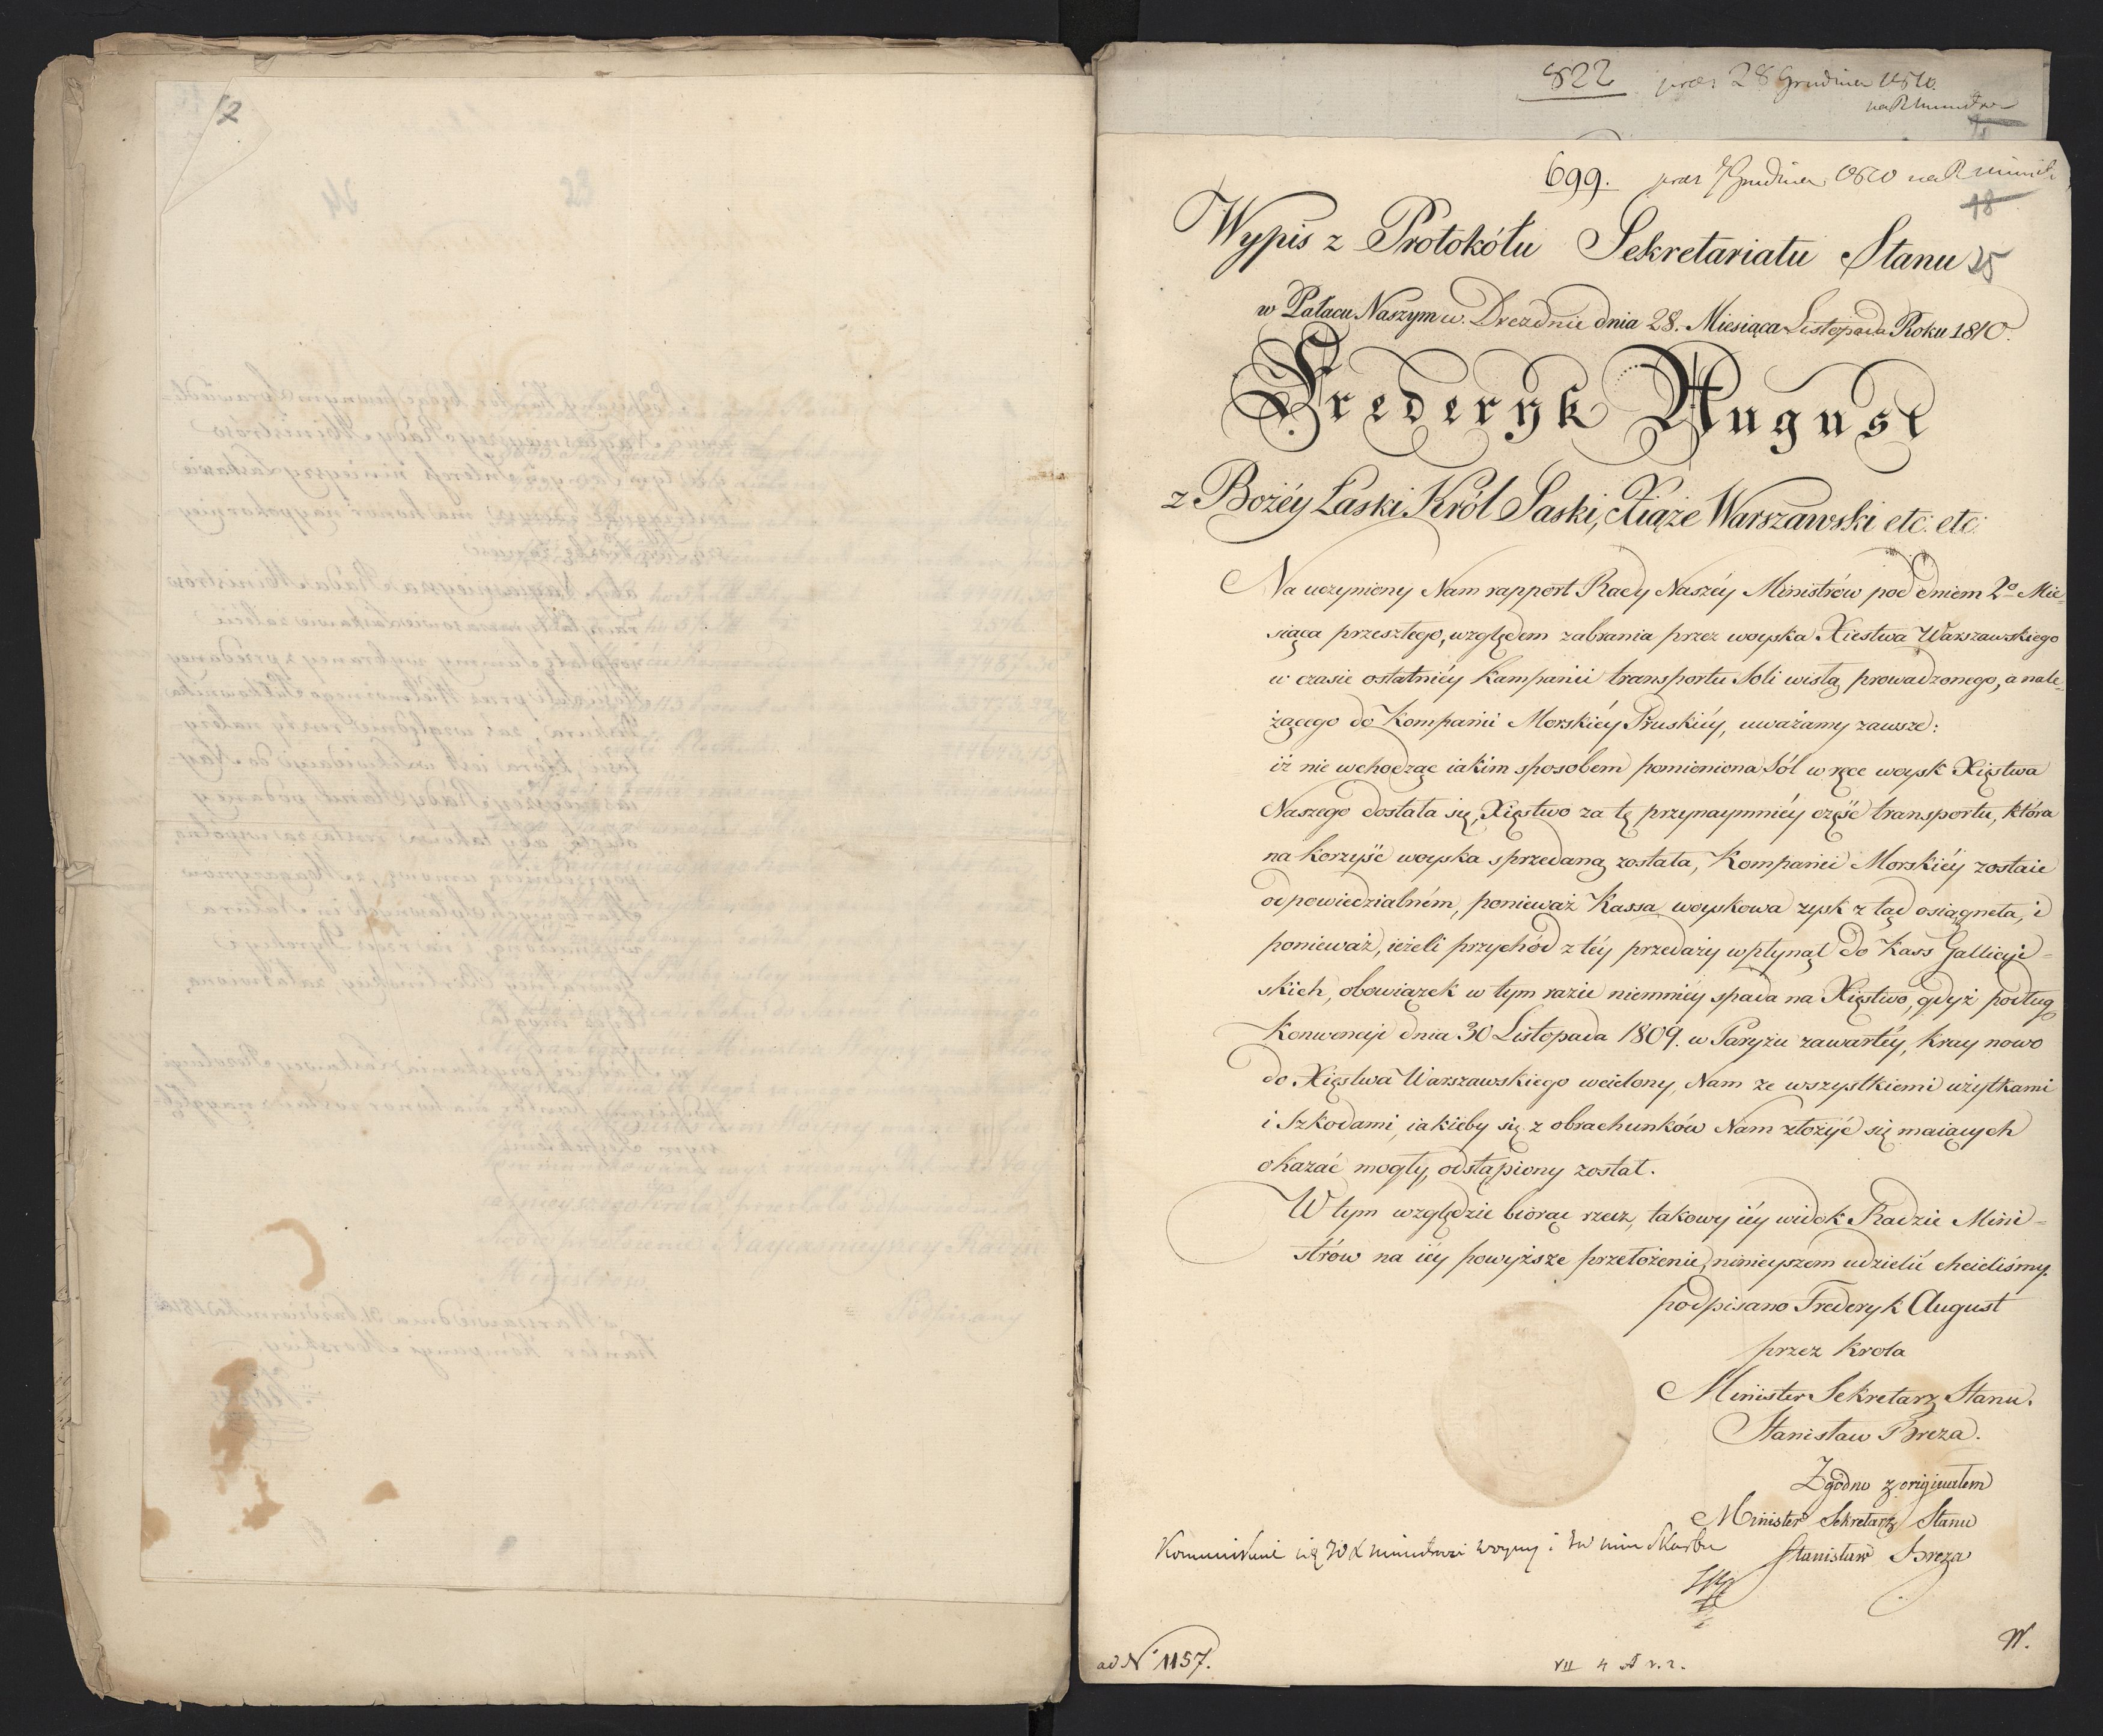 12
822 prez 28 Grudnia 1810.
699. prez 7 Grudnia 1810 na R
18
Wypis z Protokółu Sekretariatu Stanu 25
w Pałacu Naszym w. Dreźnie dnia 28. Miesiąca Listopada Roku 1810.
Frederyk August
z Bożéy Łaski Król Saski, Xiąże Warszawski etc. etc.
Na uczyniony Nam rapport Rady Naszéy Ministrów pod dniem 2º Mie=
siąca przeszłego, względem zabrania przez woyska Xiestwa Warszawskiego
w czasie ostatniéy Kampanii transportu Soli wisłą prowadzonego, a nale=
żącego do Kompanii Morskiéy Pruskiéy, uważamy zawsze:
iż nie wchodząc iakim sposobem pomieniona Sól w ręce woysk Xięstwa
Naszego dostała się, Xięstwo za tę przynaymniéy część transportu, która
na korzyść woyska sprzedaną została, Kompanii Morskiéy zostaie
odpowiedzialném, ponieważ Kassa woyskowa zysk z tąd osiągneła, i
ponieważ, ieżeli przychód z téy przedaży wpłynął do Kass Gallicyi=
skich, obowiązek w tym razie niemniéy spada na Xięstwo, gdyż podług
Konwencyi dnia 30 Listopada 1809. w Paryżu zawartéy, kray nowo
do Xięstwa Warszawskiego wcielony, Nam ze wszystkiemi użytkami
i Szkodami, iakieby się z obrachunków Nam złożyć się maiących
okazać mogły, odstąpiony został.
W tym względzie biorąc rzecz, takowy iéy widok Radzie Mini=
strów na iéy powyższe przełożenie, ninieyszem udzielić chcieliśmy.
podpisano Frederyk August
przez Krola
Minister Sekretarz Stanu.
Stanisław Breza.
Zgodno z originałem
Minister Sekretarz Stanu
Stanisław Breza
Komunikuie się JO X ministrowi woyny i Jw min Skarbu
ad Nº 1157.
VII 4 A v. 2.
W.